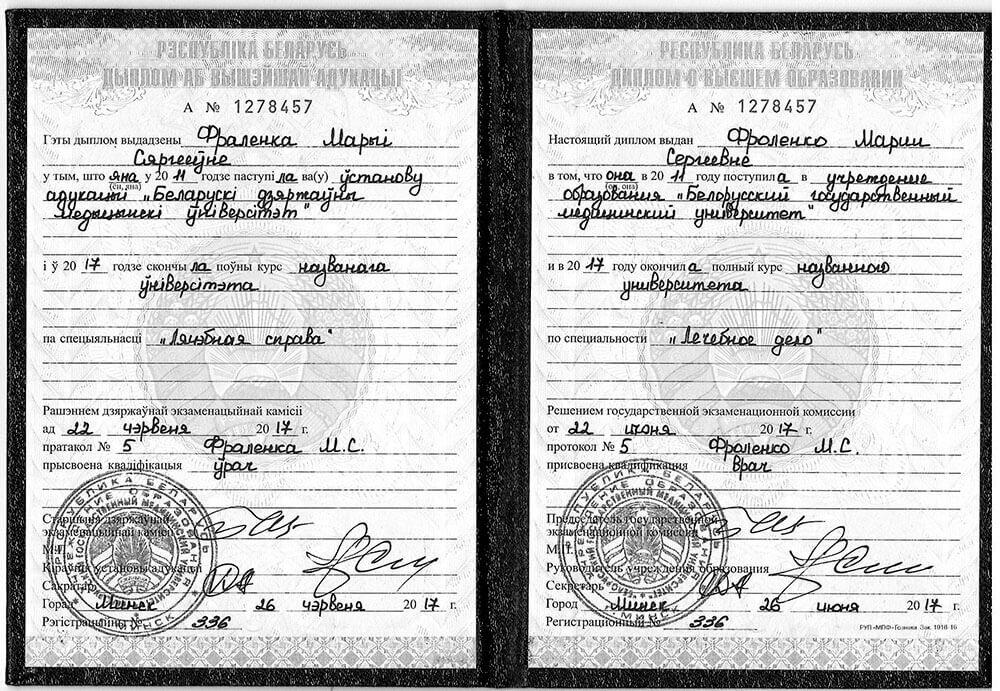 РЭСПУБЛІКА БЕЛАРУСЬ
ДЫПЛОМ АБ ВЫШЭЙШАЙ АДУКАЦЫІ
А № 1278457
Гэты дыплом выдадзены Фраленка Марыі
Сяргееўне
у тым, што яна у 2011 годзе паступіла ва(у) ўстанову
(ён, яна)
адукацыі „Беларускі дзяржаўны
медыцынскі ўніверсітэт"
і ў 2017 годзе скончыла поўны курс названага
ўніверсітэта
па спецыяльнасці „Лячэбная справа"
Рашэннем дзяржаўнай экзаменацыйнай камісіі
ад 22 чэрвеня 2017 г.
пратакол № 5 Фраленка М.С.
прысвоена кваліфікацыя ўрач
Старшыня дзяржаўнай
экзаменацыйнай камісіі
М.П.
Кіраўнік установы адукацыі
Сакратар
Горад Минск 26 чэрвеня 2017 г.
Рэгістрацыйны № 336
РЕСПУБЛИКА БЕЛАРУСЬ
ДИПЛОМ О ВЫСШЕМ ОБРАЗОВАНИИ
А № 1278457
Настоящий диплом выдан Фроленко Марии
Сергеевне
в том, что она в 2011 году поступила в учреждение
(он, она)
образования „Белорусский государственный
медицинский университет"
и в 2017 году окончила полный курс названного
университета
по специальности „Лечебное дело"
Решением государственной экзаменационной комиссии
от 22 июня 2017 г.
протокол № 5 Фроленко М.С.
присвоена квалификация врач
Председатель государственной
экзаменационной комиссии
М.П.
Руководитель учреждения образования
Секретарь
Город Минск 26 июня 2017 г.
Регистрационный № 336
РУП «МПФ» Гознака. Зак. 1916-16